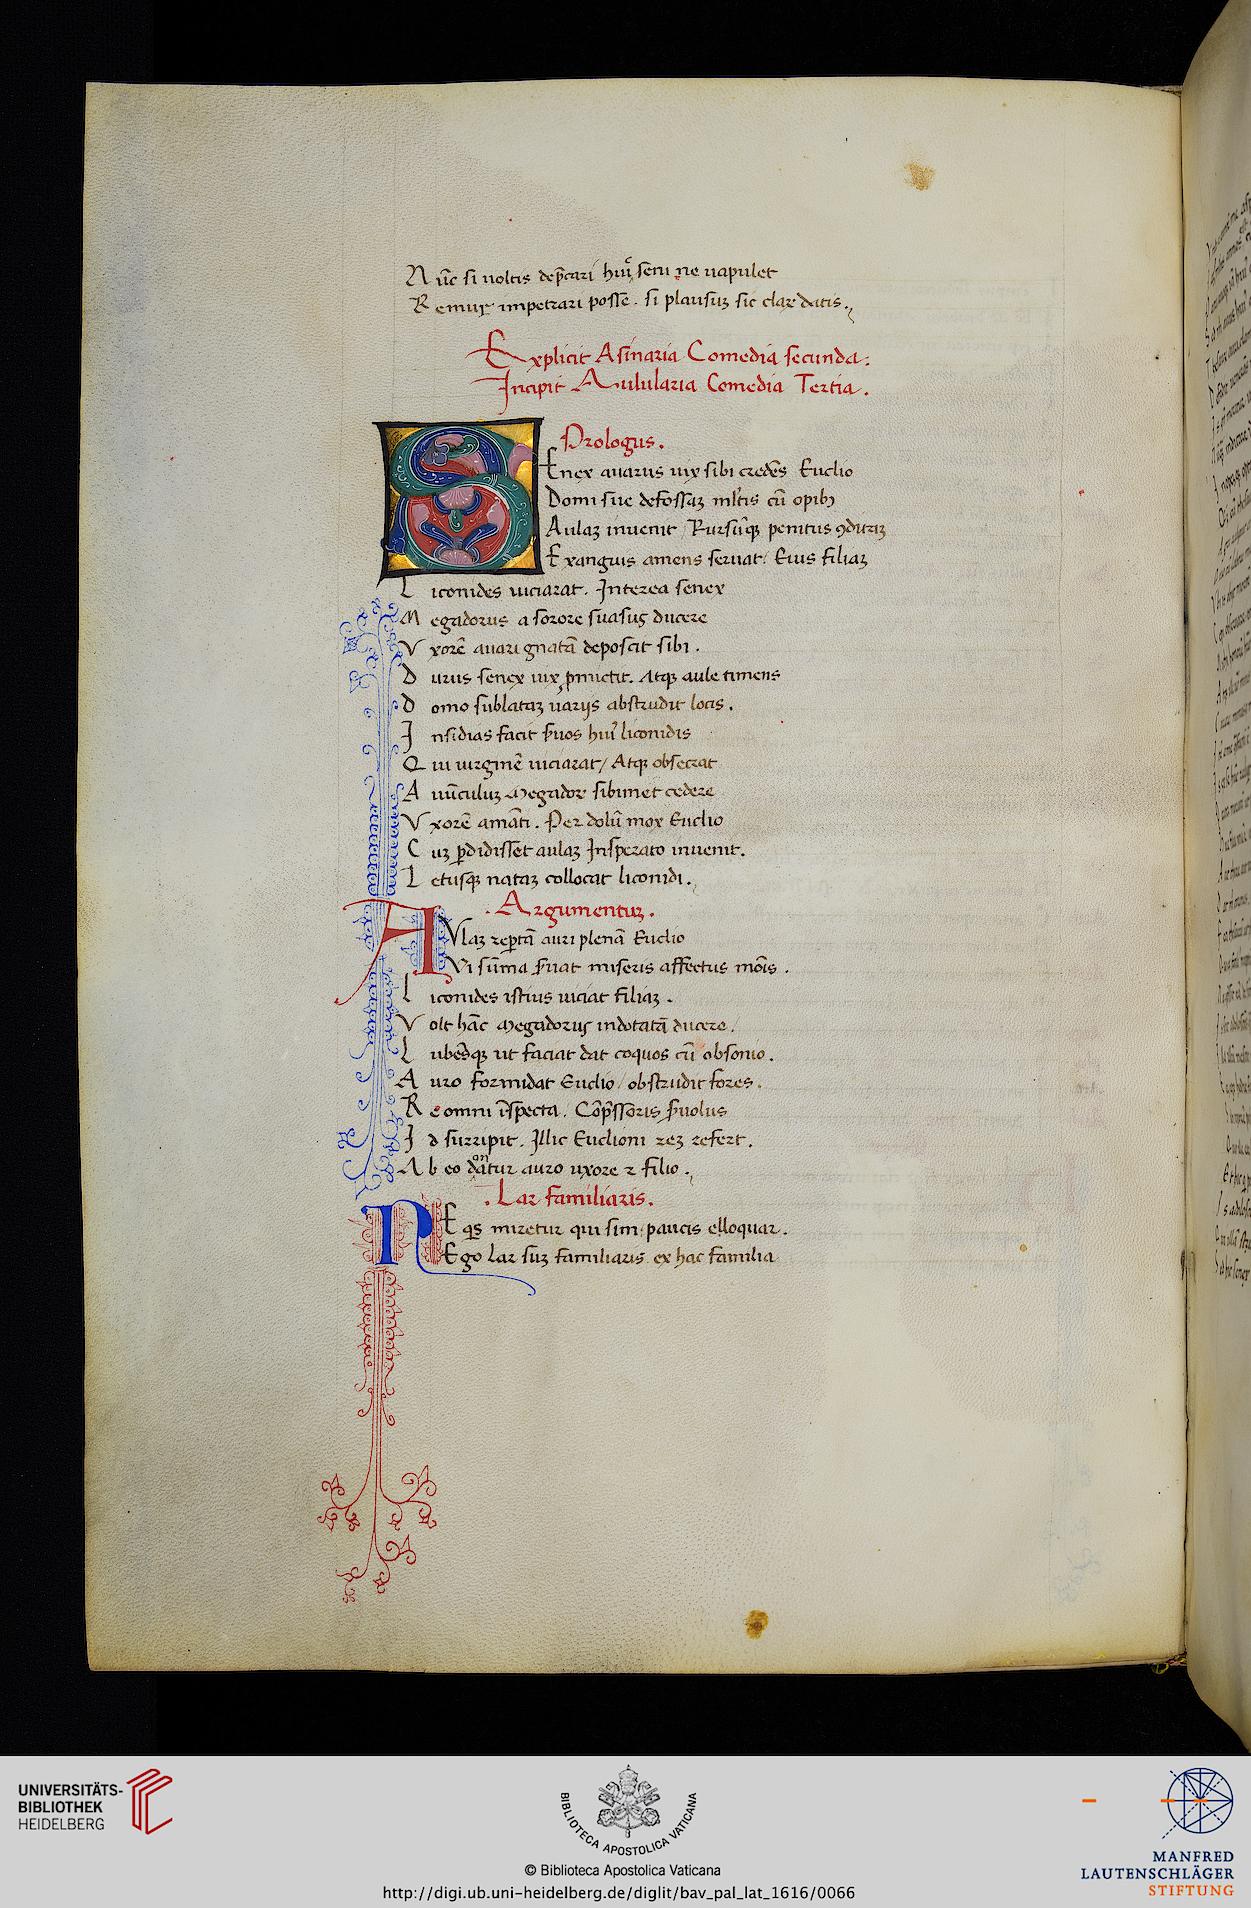 Nūc si uoltis dep̄cari huiꝰ seni ne uapulet
Remur impetrari posse. si plausuꝫ sic claꝝ datis.
Explicit Asinaria Comedia secunda:
Incipit Aulularia Comedia Tertia.
Prologus.
SEnex auarus uix sibi credēs Euclio
Domi sue defossaꝫ ml̄tis cū opibꝫ
Aulaꝫ inuenit / Rursūqꝫ penitus ꝯditaꝫ
Exanguis amens seruat / Eius filiaꝫ
Liconides uiciarat. Interea senex
Megadorus a sorore suasuꝫ ducere
Vxorē auari gnatā deposcit sibi.
Durus senex uix ꝓmictit. Atqꝫ aule timens
Domo sublataꝫ uarijs abstrudit locis.
Insidias facit ẜuos huiꝰ liconidis
Qui uirginē uiciarat / Atqꝫ obsecrat
Auūculuꝫ Megadoꝝ sibimet cedere
Vxorē amāti. Per dolū mox Euclio
Cuꝫ ꝑdidisset aulaꝫ Insperato inuenit.
Letusqꝫ nataꝫ collocat liconidi.
.Argumentuꝫ.
AVlaꝫ reꝑtā auri plenā Euclio
Vi sūma ẜuat miseris affectus modis.
Liconides istius uiciat filiaꝫ.
Volt hāc Megadorus indotatā ducere.
Lubēsqꝫ ut faciat dat coquos cū obsonio.
Auro formidat Euclio / obstrudit fores.
Re omni īspecta. Cōp̄ssoris ẜuolus
Id surripit. Illic Euclioni reꝫ refert.
Ab eo donatur auro uxore ⁊ filio.
.Lar familiaris.
NE qͥs miretur qui sim paucis elloquar.
Ego Lar suꝫ familiaris ex hac familia
UNIVERSITÄTS-
BIBLIOTHEK
HEIDELBERG
BIBLIOTECA APOSTOLICA VATICANA
© Biblioteca Apostolica Vaticana
http://digi.ub.uni-heidelberg.de/diglit/bav_pal_lat_1616/0066
MANFRED
LAUTENSCHLÄGER
STIFTUNG